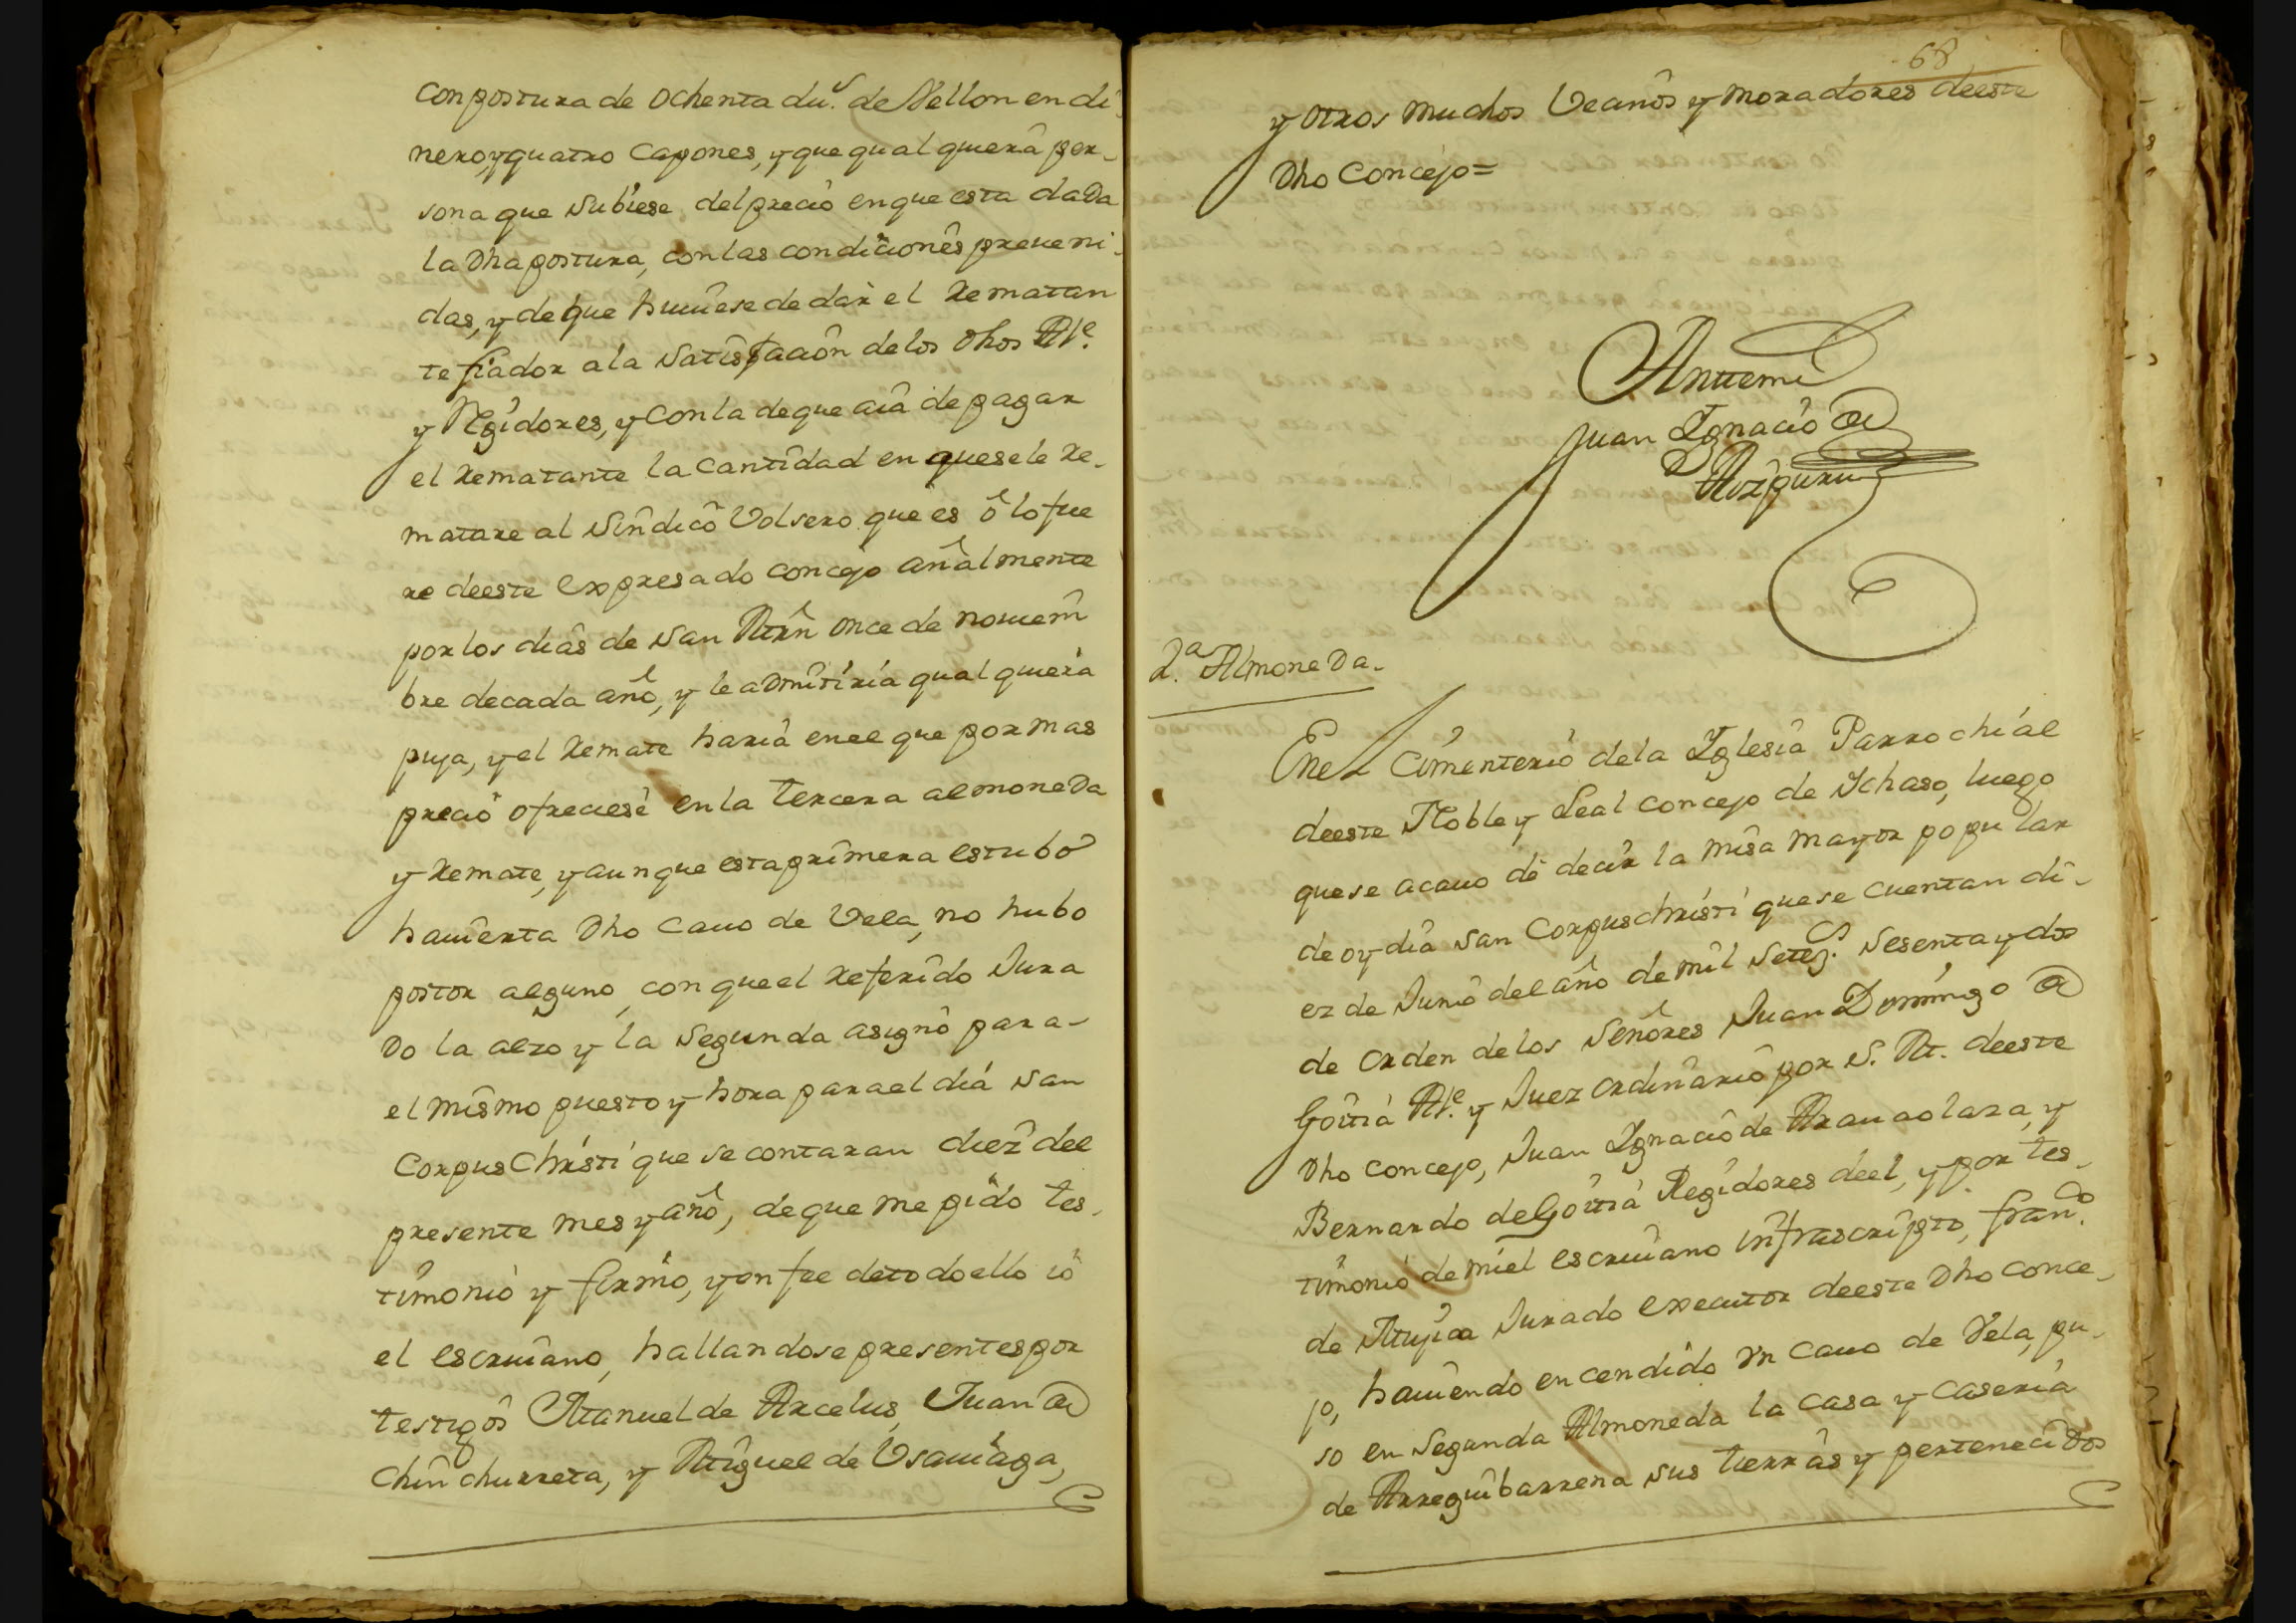 con postura de ochenta du.s de Vellon en di
nero, y quatro Capones, y que qual quiera per-
sona que subiese del precio en que esta dada
la dha postura, con las condiciones preveni-
das, y de que huuiese de dar el rematan
te fiador a la satisfaccion de los dhos Alc.e
y Regidores, y con la de que aia de pagar
el rematante la cantidad en que se le re-
matare al Sindico Volsero que es ô lo fue
re de este expresado concejo añalmente
por los dias de San Mrñ once de nouiem
bre de cada año, y le admitiria qual quiera
puja, y el remate haria en el que por mas
precio ofreciese en la tercera almoneda
y remate, y aunque esta primera estubo
hauierta dho cauo de Vela, no hubo
postor alguno, con que el referido Jura
do la alzo y la segunda asignò para-
el mismo puesto y hora para el dia san
Corpus Christi que se contaran diez del
presente mes y año, de que me pidio tes-
timonio y firmo, y en fee de todo ello iô
el escriuano, hallandose presentes por
testigos Manuel de Arcelus, Juan de
Chinchurreta, y Miguel de Vsauiaga,
68
y otros muchos Vecinos y moradores de este
dho Concejo=
Antemi
Juan Ignacio de
Aozpuru
2.a Almoneda.
En el Cimenterio de la Iglesia Parrochial
de este Noble y Leal concejo de Ichaso, luego
que se acauo de decir la misa mayor popular
de oy dia san Corpus christi que se cuentan di-
ez de Junio del año de mil seteз.s sesenta y dos
de orden de los Señores Juan Domingo de
Goitia Alc.e y Juez ordinario por S. M. de este
dho concejo, Juan Ignacio de Arauaolaza, y
Bernardo de Goitia Regidores de el, y por tes-
timonio de mi el escriuano infrascripto, fran.co
de Mujica Jurado executor de este dho conce-
jo, hauiendo encendido vn cauo de Vela, pu-
so en segunda Almoneda la casa y caseria
de Arreguibarrena sus tierras y pertenecidos